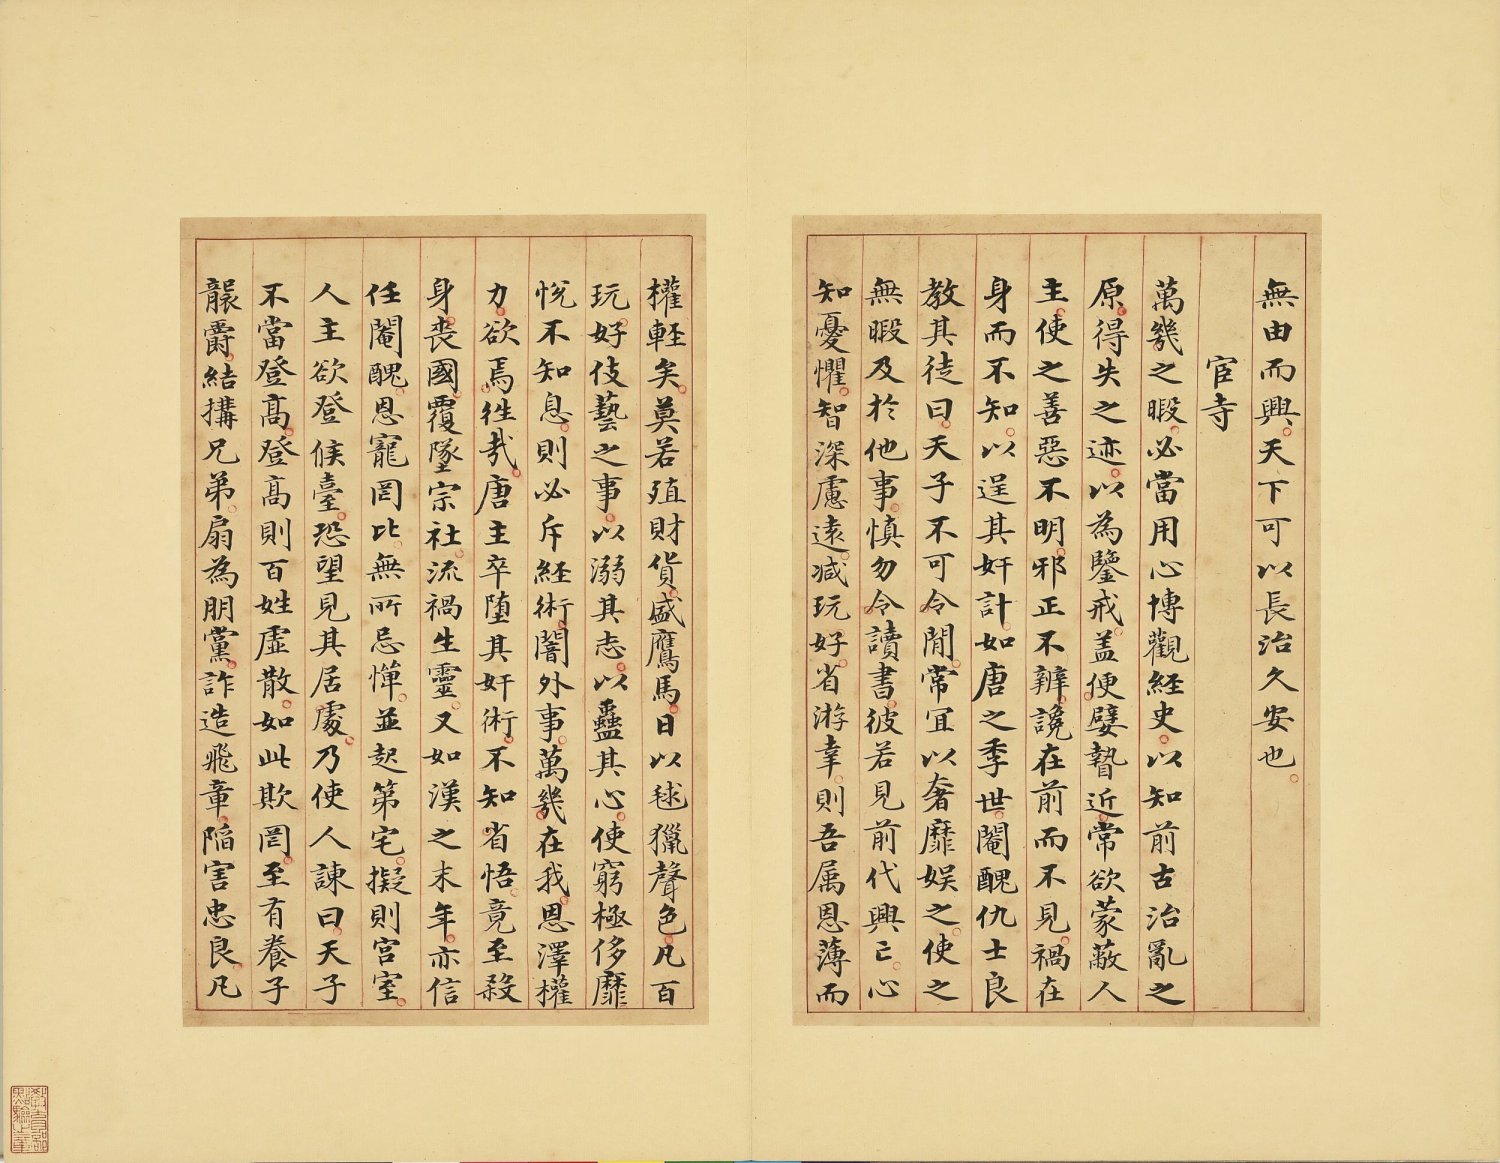 無由而興天下可以長治久安也
宦寺
萬幾之暇必當用心博觀經史以知前古治亂之
原得失之迹以為鑒戒盖便嬖贄近常欲蒙蔽人
主使之善惡不明邪正不辨讒在前而不見禍在
身而不知以逞其奸計如唐之季世閹醜仇士良
教其徒曰天子不可令閒常宜以奢靡娛之使之
無暇及於他事慎勿令讀書彼若見前代興亡心
知憂懼智深慮遠减玩好省游幸則吾属恩薄而
權輕矣莫若殖財貨盛鷹馬日以毬獵聲色凡百
玩好伎藝之事以溺其志以蠱其心使窮極侈靡
悅不知息則必斥經術闇外事萬幾在我恩澤權
力欲焉往哉唐主卒堕其奸術不知省悟竟至殺
身喪國覆墜宗社流禍生靈又如漢之末年亦信
任閹醜恩寵罔比無所忌憚並起第宅擬則宮室
人主欲登候臺恐望見其居處乃使人諫曰天子
不當登高登高則百姓虛散如此欺罔至有養子
襲爵結搆兄弟扇為朋黨詐造飛章陷害忠良凡